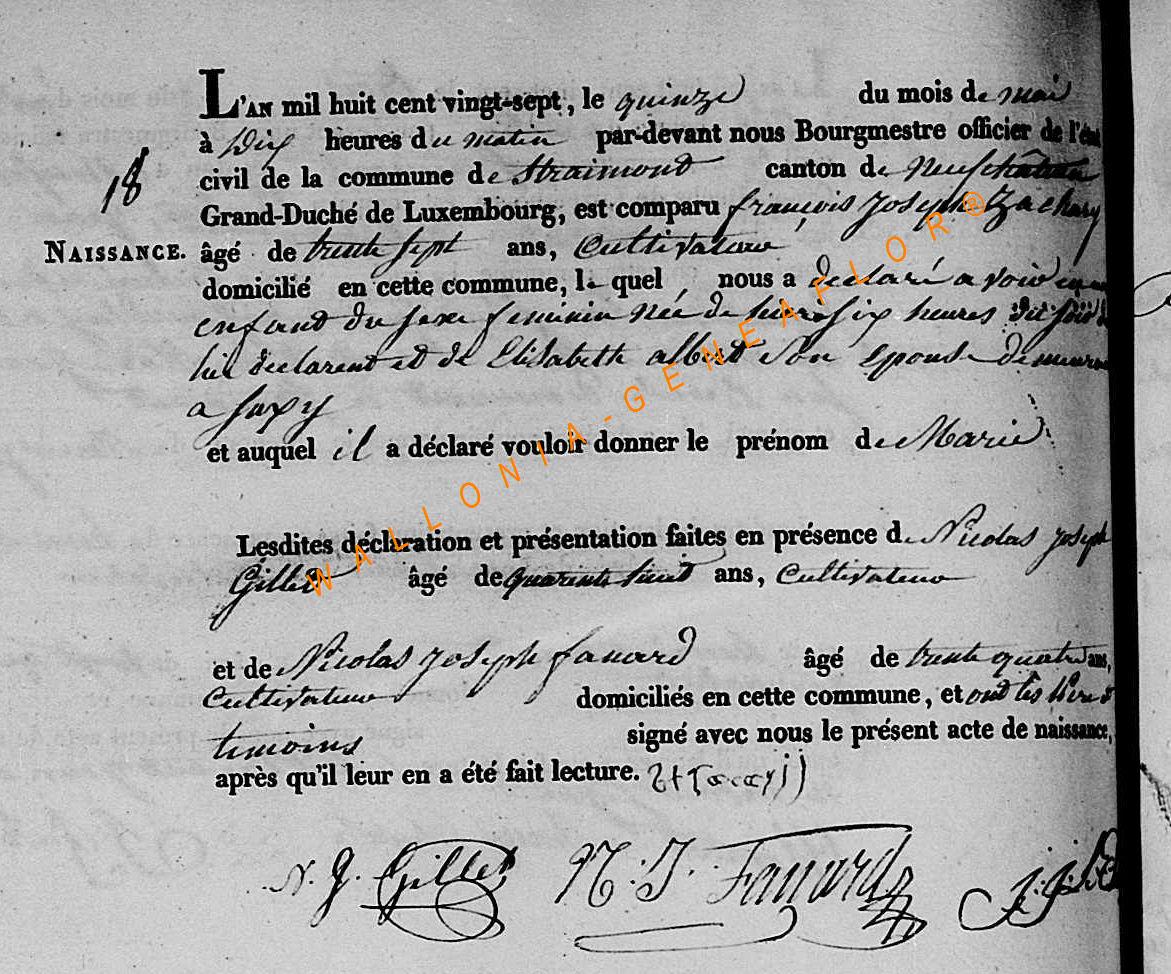 L'AN mil huit cent vingt-sept, le quinze du mois de mai
à Dix heures du matin par-devant nous Bourgmestre officier de l'état
civil de la commune de Straimont canton de Neufchateau
18
Grand-Duché de Luxembourg, est comparu françois Joseph Zachary
NAISSANCE. âgé de trente sept ans, Cultivateur
domicilié en cette commune, le quel nous a declaré avoir un
enfant du sexe feminin née de hier à six heures du soir de
lui declarant et de Elisabeth albert son epouse
a
et auquel il a déclaré vouloir donner le prénom de Marie
Lesdites déclaration et présentation faites en présence de Nicolas Joseph
Gillet âgé de quarente huit ans, Cultivateur
et de Nicolas Joseph fanard âgé de trente quatre ans,
Cultivateur domiciliés en cette commune, et ont les
temoins signé avec nous le présent acte de naissance,
après qu'il leur en a été fait lecture.
N. J. Gillet N. J. Fanard
WALLONIA-GENEAFLOR®